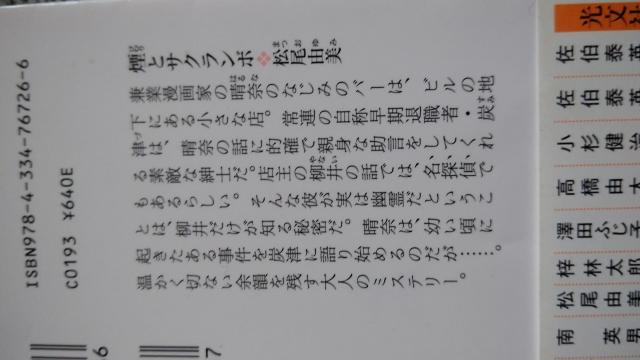 煙とサクランボ❖松尾由美
兼業漫画家の晴奈のなじみのバーは、ビルの地
下にある小さな店。常連の自称早期退職者・炭
津は、晴奈の話に的確で親身な助言をしてくれ
る素敵な紳士だ。店主の柳井の話では、名探偵で
もあるらしい。そんな彼が実は幽霊だというこ
とは、柳井だけが知る秘密だ。晴奈は、幼い頃に
起きたある事件を炭津に語り始めるのだが……。
温かく切ない余韻を残す大人のミステリー。
ISBN978-4-334-76726-6
C0193 ¥640E
6
7
光文
佐伯泰英
佐伯泰英
小杉健治
高橋由太
澤田ふじ子
梓林太郎
松尾由美
南英男